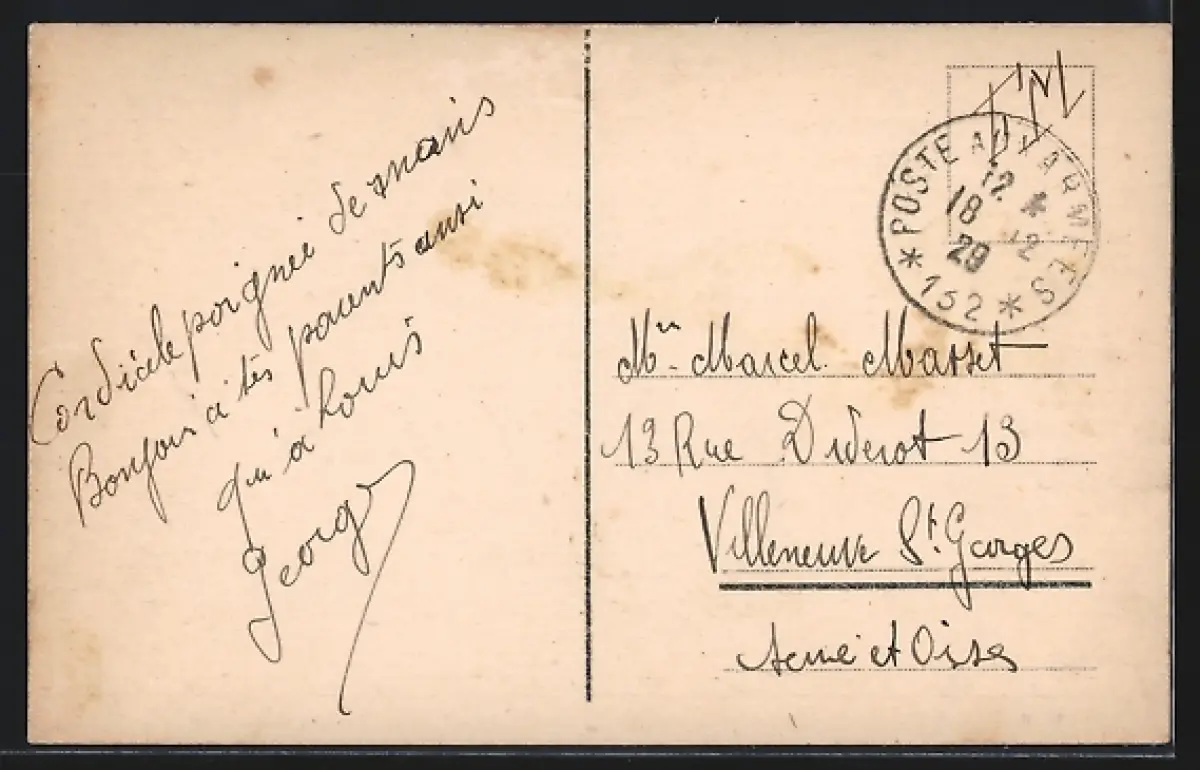 Cordiale poignée de mains
Bonjour a tes parents aussi
qu'à Louis
George
FM
* POSTE AUX ARMEES * 152
12 *
18 12
29
Mr. Marcel Masset
13 Rue Diderot 13
Villeneuve St. Georges
Seine et Oise